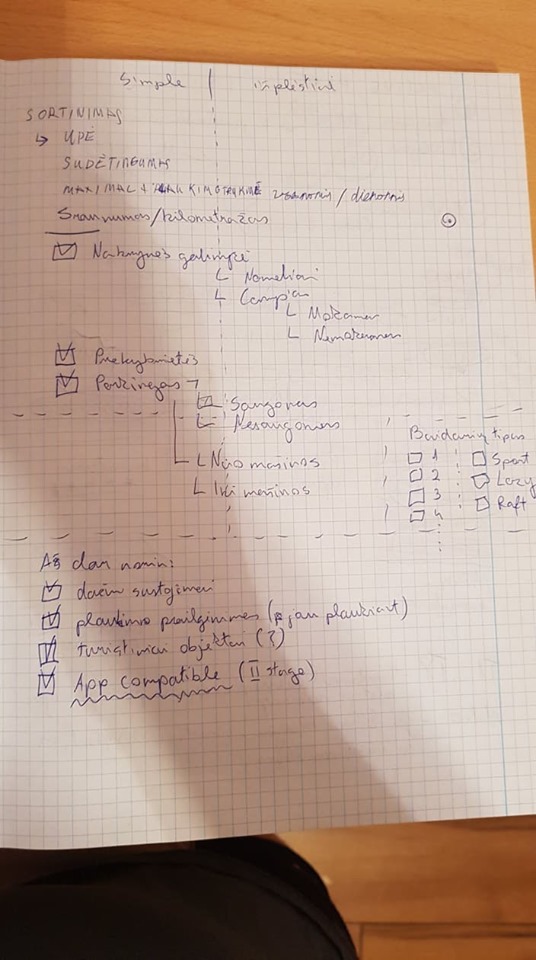 Simple | išplėstini
SORTINIMAS
↳ UPĖ
SUDĖTINGUMAS
valandomis / dienomis
Sraunumas/kilometražas
☑ Nakvynės galimybė
└ Nameliai
└ Campin
└ Mokamas
└ Nemokamas
☑ Prekybvietės
☑ Parkingas
Saugomas
└ Nesaugomas
└ Nuo mašinos
└ Iki mašinos
Baidarių tipas
☐ 1 ☐ Sport
☐ 2 ☐ Lazy
☐ 3 ☐ Raft
☐ 4
Aš dar norim:
☑ daėm sustojimai
☑ plaukimo prailginimas (jau plaukiant)
☑ turistiniai objektai (?)
☑ App compatible (II stage)